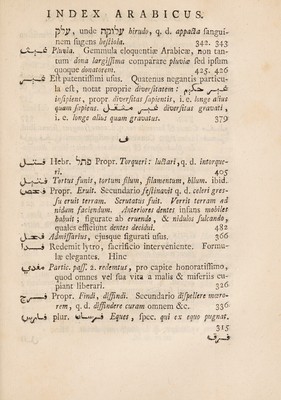 INDEX ARABICUS.
علق, unde עלוקה hirudo, q. d. appacta sangui-
nem sugens bestiola. 342. 343
غيث Pluvia. Gemmula eloquentiæ Arabicæ, non tan-
tum dona largissima comparare pluviæ sed ipsum
quoque donatorem. 425. 426
غير Est patentissimi usus. Quatenus negantis particu-
la est, notat proprie diversitatem: غير حكيم
insipiens, propr. diversitas sapientis, i. e. longe alius
quam sapiens. غير مثقل diversitas gravati,
i. e. longe alius quam gravatus. 379
ف
فتل Hebr. פתל Propr. Torqueri: luctari, q. d. intorque-
ri. 405
فتيل Tortus funis, tortum filum, filamentum, ellum. ibid.
فحص Propr. Eruit. Secundario festinavit q. d. celeri gres-
su eruit terram. Scrutatus fuit. Verrit terram ad
nidum faciendum. Anteriores dentes infans mobiles
habuit; figurate ab eruendo, & nidulos fulcando,
quales efficiunt dentes decidui. 482
فحل Admissarius, ejusque figurati usus. 366
فدا Redemit lytro, sacrificio interveniente. Formu-
læ elegantes. Hinc
مفدي Partic. pass. 2. redemtus, pro capite honoratissimo,
quod omnes vel sua vita a malis & miseriis cu-
piant liberari. 326
فرج Propr. Findi, diffindi. Secundario dispellere mœro-
rem, q. d. diffindere curam omnem &c. 336
فارس plur. فرسان Eques, spec. qui ex equo pugnat.
315
فرق